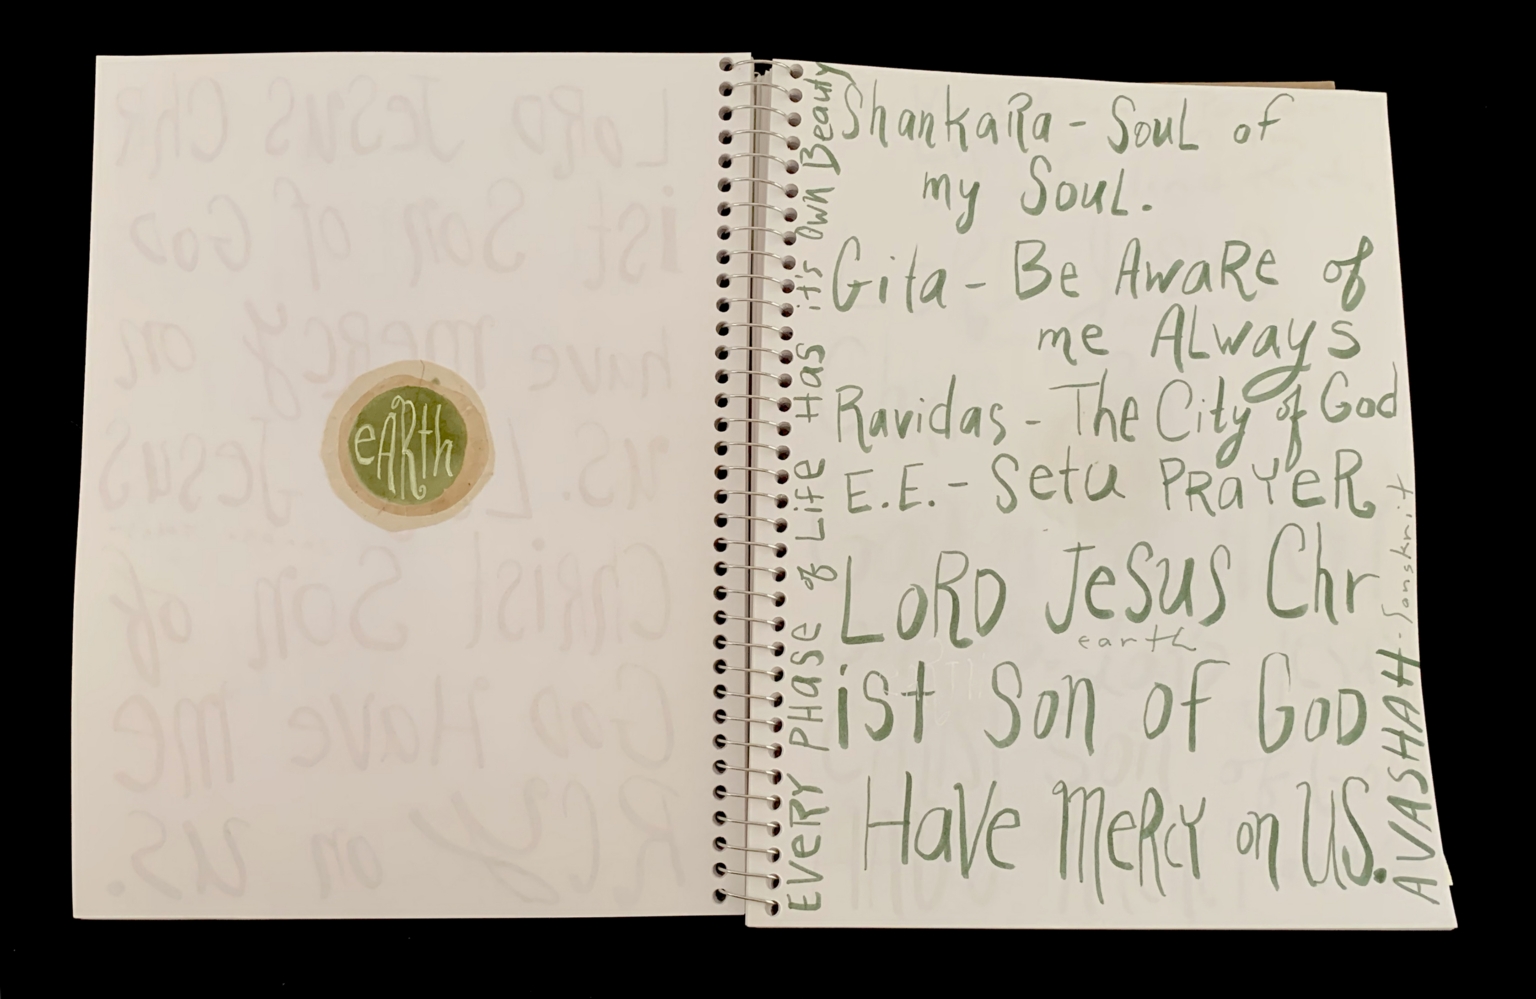 eARth
EVERY PHASE of Life Has it's Own Beauty
ShankaRa - SouL of
my SouL.
Gita - Be AwaRe of
me ALways
Ravidas - The City of God
E.E. - Setu PRaYeR
LoRD JeSus Chr
earth
ist Son of GoD
Have MeRcY on US.
AVASHAH - Sanskrit